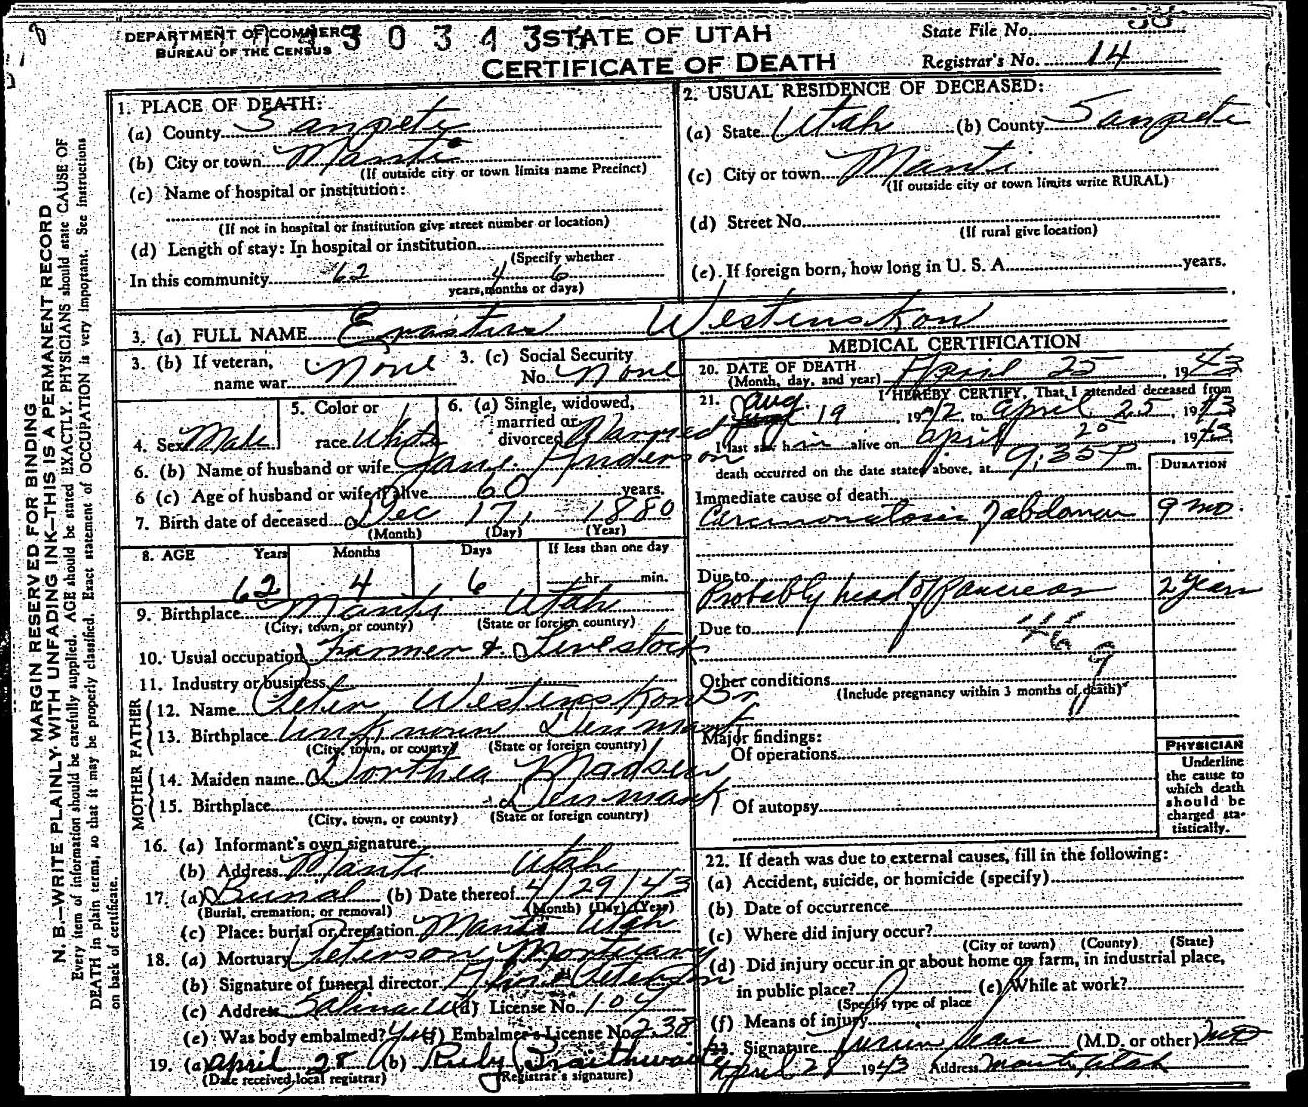 DEPARTMENT OF COMMERCE
BUREAU OF THE CENSUS
STATE OF UTAH
CERTIFICATE OF DEATH
State File No.
Registrar's No. 14
MARGIN RESERVED FOR BINDING
N. B.—WRITE PLAINLY WITH UNFADING INK—THIS IS A PERMANENT RECORD
Every item of information should be carefully supplied. AGE should be stated EXACTLY. PHYSICIANS should state CAUSE OF
DEATH in plain terms, so that it may be properly classified. Exact statement of OCCUPATION is very important. See instructions
on back of certificate.
1. PLACE OF DEATH:
(a) County Sanpete
(b) City or town Manti
(If outside city or town limits name Precinct)
(c) Name of hospital or institution:
(If not in hospital or institution give street number or location)
(d) Length of stay: In hospital or institution
(Specify whether
In this community 62 4 6
years, months or days)
2. USUAL RESIDENCE OF DECEASED:
(a) State Utah (b) County Sanpete
(c) City or town Manti
(If outside city or town limits write RURAL)
(d) Street No.
(If rural give location)
(e) If foreign born, how long in U. S. A. years.
3. (a) FULL NAME Erastus Westenskow
3. (b) If veteran, name war None
3. (c) Social Security No. None
4. Sex Male
5. Color or race White
6. (a) Single, widowed, married or divorced Married
6. (b) Name of husband or wife Jane Anderson
6 (c) Age of husband or wife if alive 60 years.
7. Birth date of deceased Dec 17, 1880
(Month) (Day) (Year)
8. AGE Years Months Days If less than one day
62 4 6 hr. min.
9. Birthplace Manti Utah
(City, town, or county) (State or foreign country)
10. Usual occupation Farmer & Livestock
11. Industry or business
FATHER
12. Name Peter Westenskow Sr
13. Birthplace unknown Denmark
(City, town, or county) (State or foreign country)
MOTHER
14. Maiden name Dorthea Madsen
15. Birthplace Denmark
(City, town, or county) (State or foreign country)
16. (a) Informant's own signature
(b) Address Manti Utah
17. (a) Burial (b) Date thereof 4/29/43
(Burial, cremation, or removal) (Month) (Day) (Year)
(c) Place: burial or cremation Manti Utah
18. (a) Mortuary Peterson Mortuary
(b) Signature of funeral director Peterson
(c) Address Salina (d) License No. 107
(e) Was body embalmed? Yes (f) Embalmer's License No. 238
19. (a) April 28 (b) Ruby Braithwaite
(Date received local registrar) (Registrar's signature)
MEDICAL CERTIFICATION
20. DATE OF DEATH
(Month, day, and year) April 25, 1943
21. I HEREBY CERTIFY, That I attended deceased from
Aug 19, 1942 to April 25, 1943
I last saw him alive on April 25, 1943
death occurred on the date stated above, at 9:35 P m.
DURATION
Immediate cause of death
abdomen 9 mo.
Due to
Probably head of Pancreas 2 years
Due to
46 g
Other conditions
(Include pregnancy within 3 months of death)
Major findings:
Of operations
Of autopsy
PHYSICIAN
Underline
the cause to
which death
should be
charged sta-
tistically.
22. If death was due to external causes, fill in the following:
(a) Accident, suicide, or homicide (specify)
(b) Date of occurrence
(c) Where did injury occur?
(City or town) (County) (State)
(d) Did injury occur in or about home on farm, in industrial place,
in public place? (e) While at work?
(Specify type of place
(f) Means of injury
23. Signature (M.D. or other) MD
April 28 1943 Address Manti, Utah